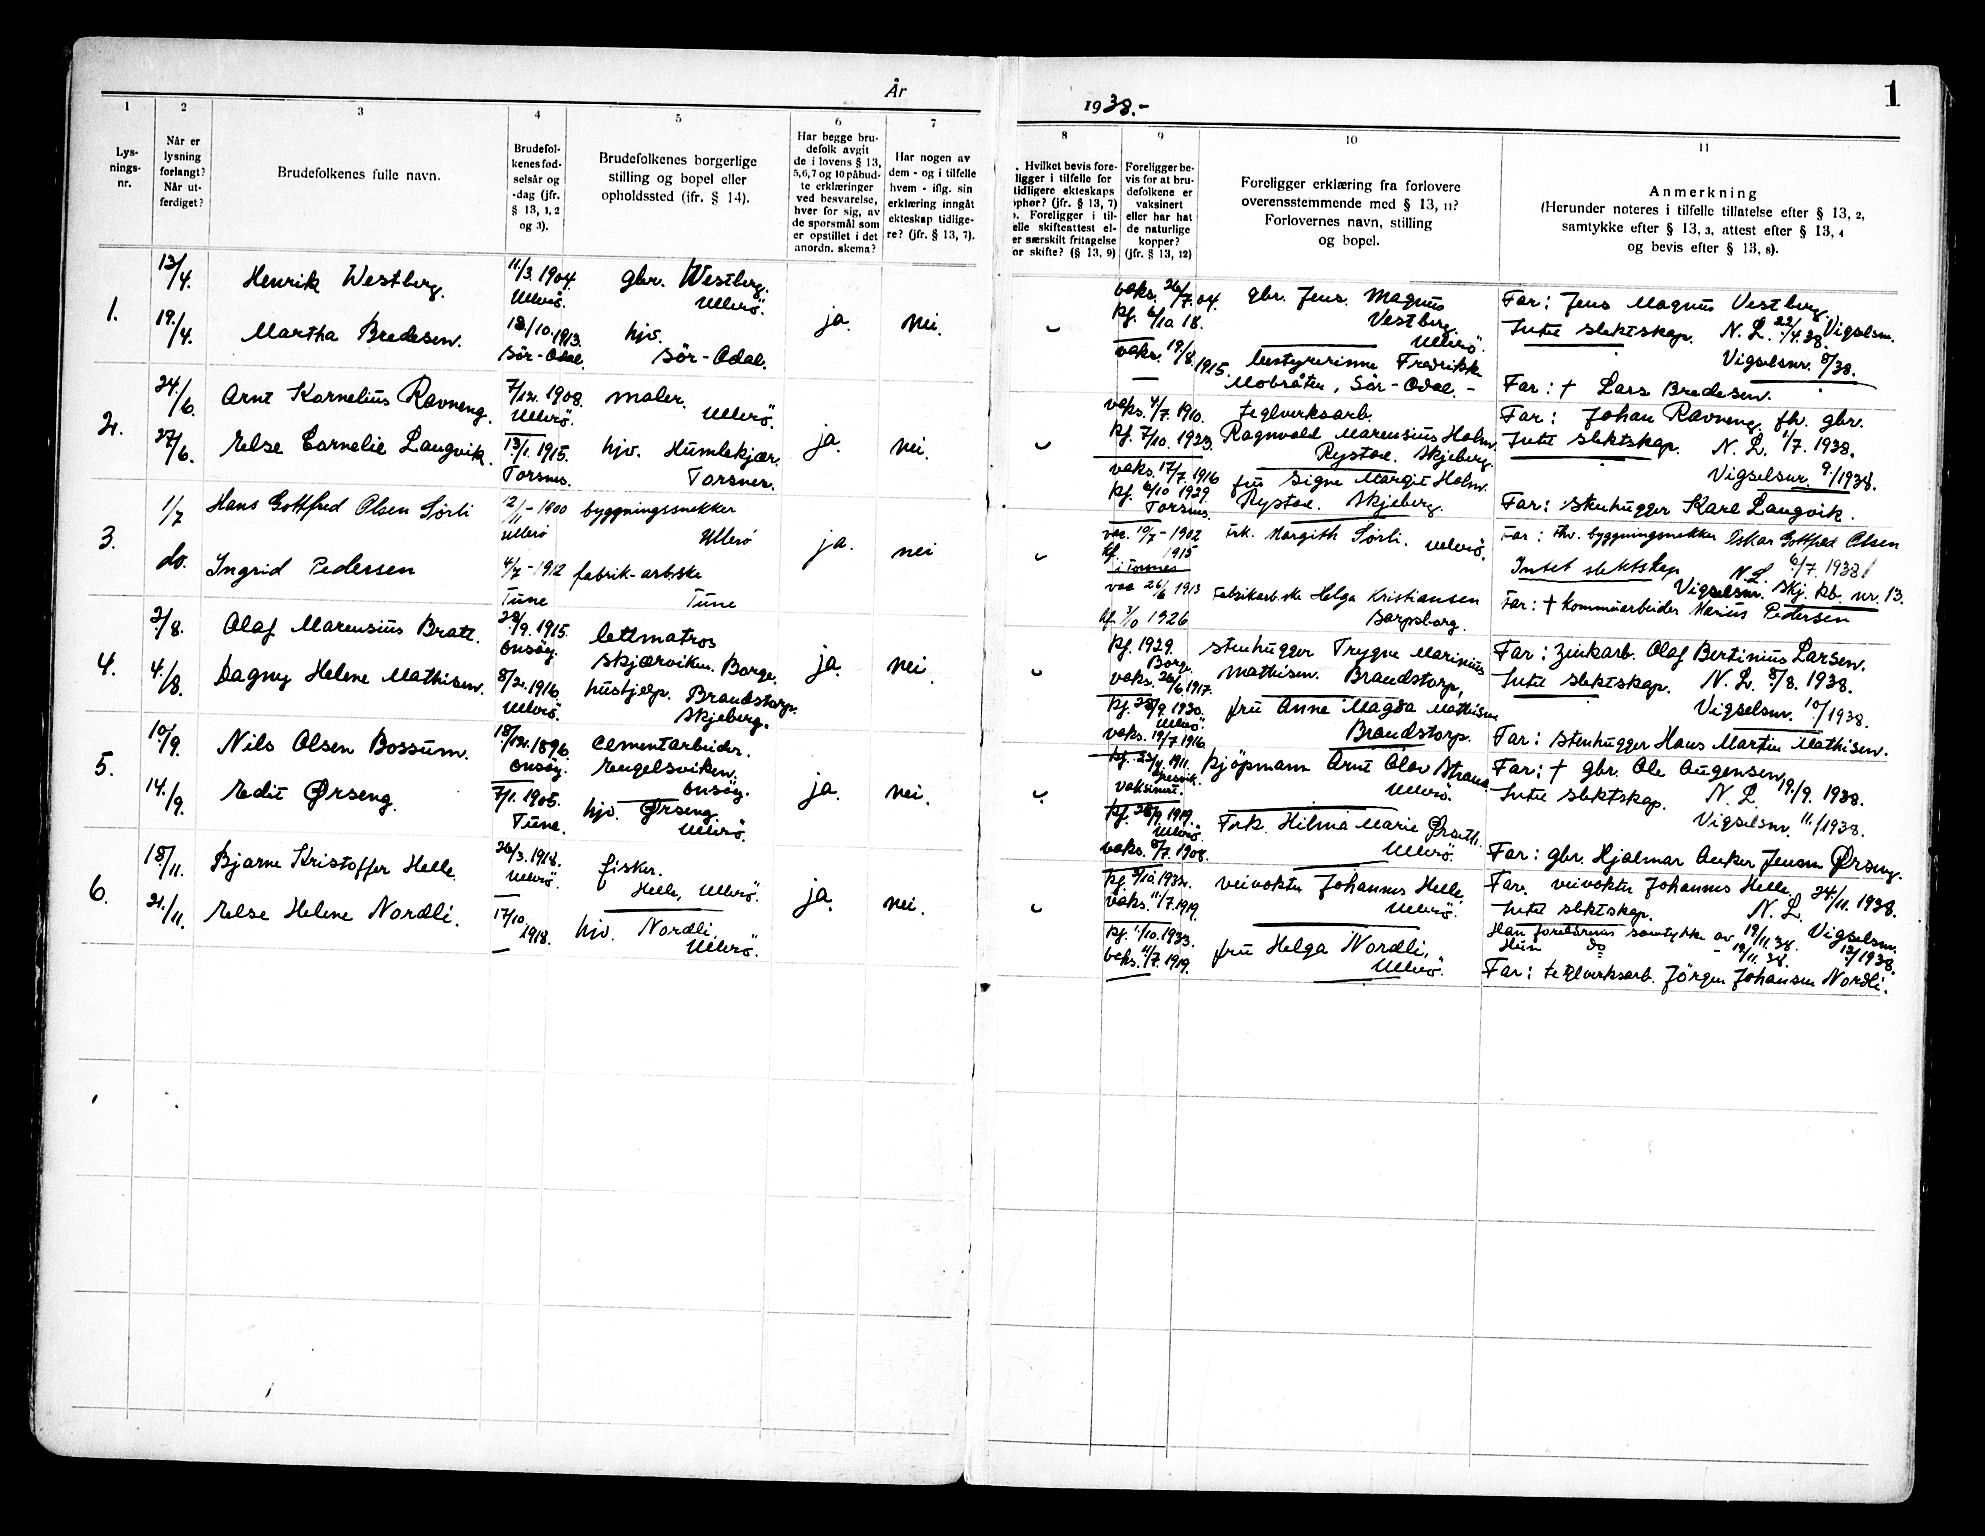 År 1938.-
1
1
Lys-
nings-
nr.
2
Når er
lysning
forlangt?
Når ut-
ferdiget?
3
Brudefolkenes fulle navn.
4
Brudefol-
kenes fød-
selsår og
-dag (jfr.
§ 13, 1, 2
og 3).
5
Brudefolkenes borgerlige
stilling og bopel eller
opholdssted (ifr. § 14).
6
Har begge bru-
defolk avgit
de i lovens § 13,
5,6,7 og 10 påbud-
te erklæringer
ved besvarelse,
hver for sig, av
de spørsmål som
er opstillet i det
anordn. skema?
7
Har nogen av
dem - og i tilfelle
hvem - iflg. sin
erklæring inngåt
ekteskap tidlige-
re? (jfr. § 13, 7).
8
. Hvilket bevis fore-
ligger i tilfelle for
tidligere ekteskaps
ophør? (jfr. § 13, 7)
. Foreligger i til-
elle skifteattest el-
er særskilt fritagelse
for skifte? (§ 13, 9)
9
Foreligger be-
vis for at bru-
defolkene er
vaksinert
eller har hat
de naturlige
kopper?
(jfr. § 13, 12)
10
Foreligger erklæring fra forlovere
overensstemmende med § 13, 11?
Forlovernes navn, stilling
og bopel.
11
Anmerkning
(Herunder noteres i tilfelle tillatelse efter § 13, 2,
samtykke efter § 13, 3, attest efter § 13, 4
og bevis efter § 13, 8).
1.
13/4.
Henrik Westberg.
11/3. 1904.
Ullerö.
gbr. Westberg.
Ullerö.
19./4.
Martha Bredesen.
18./10. 1913.
Sör-Odal.
hjv.
Sör-Odal.
ja.
nei.
vaks. 26/7. 04.
kf. 6/10 18.
vaks. 19/8. 1915.
gbr. Jens Magnus
Vestberg.
Ullerö.
bestyrerinne Fredrikke
Mobråten, Sör-Odal.-
Far: Jens Magnus Vestberg.
Intet slektskap. N. L. 22/4. 38. Vigselsnr.
Vigselsnr. 8/38.
Far: † Lars Bredesen.
2.
24./6.
Arnt Kornelius Ravneng.
7/12. 1908.
Ullerö.
maler.
Ullerö.
27./6.
Else Cornelie Langvik.
13/1. 1915.
Torsnes.
hjv. Humlekjær.
Torsnes.
ja.
nei.
vaks. 4/7. 1910.
kf. 7/10. 1923.
vaks. 17/7. 1916
kf. 6/10 1929.
Torsnes.
teglverksarb.
Ragnvald Marensius Holm.
Rystad. Skjeberg.
fru Signe Margit Holm.
Rystad. Skjeberg.
Far: Johan Ravneng, fh. gbr.
Intet slektskap. N. L. 1/7. 1938.
Vigselsnr. 9./1938.
Far: stenhugger Karl Langvik.
3.
1/7
Hans Gottfred Olsen Sørli
12/11 - 1900
Ullerö
byggningssnekker
Ullerö
do.
Ingrid Pedersen
4/7 - 1912
Tune
fabrik-arb.ske
Tune
ja.
nei
vac. 10/7 - 1902
kf. 1915
i Torsnes
vac 26/6 1913
kf. 3/10 1926
Frk. Margith Sørli. Ullerö.
Fabrikarb.ske Helga Kristiansen
Sarpsborg.
Far: fhv. byggningsnekker Oskar Gottfred Olsen
Intet slektskap N.L. 6/7. 1938
Vigselsnr. Skj. kb. nr. 13.
Far: † kommunearbeider Marius Pedersen
4.
2/8.
Olaf Marensius Bratt.
28/9. 1915.
Onsöy.
lettmatros
Skjærviken. Borge.
4./8.
Dagny Helene Mathisen.
8/2. 1916
Ullerö.
hushjelp. Brandstorp.
Skjeberg.
ja.
nei.
kf. 1929.
Borge.
vaks. 26/6. 1917.
kf. 28/9. 1930.
Ullerö.
vaks. 19/7. 1916.
stenhugger Trygve Marinius
Mathisen. Brandstorp,
fru Anne Magda Mathisen
Brandstorp.
Far: zinkarb. Olaf Bertinius Larsen.
Intet slektskap. N. L. 8./8. 1938.
Vigselsnr. 10/1938.
Far: stenhugger Hans Martin Mathisen.
5.
10/9.
Nils Olsen Bossum.
18/12. 1896.
Onsöy.
cementarbeider.
Engelsviken.
Onsöy.
14./9.
Edit Ørseng.
7/1. 1905.
Tune.
hjv. Ørseng.
Ullerö.
ja.
nei.
vaksinert.
kf. 28/9. 1919.
Ullerö.
vaks. 8/7. 1908.
kjöpmann Arnt Olav Strand
Ullerö.
Frk. Hilma Marie
Ullerö.
Far: † gbr. Ole Augensen.
Intet slektskap. N. L. 19./9. 1938.
Vigselsnr. 11/1938.
Far: gbr. Hjalmar Anker Jensen Ørseng.
6.
18/11.
Bjarne Kristoffer Helle.
26/3. 1918.
Ullerö.
fisker.
Helle, Ullerö.
21./11.
Else Helene Nordli.
17/10. 1918.
hjv. Nordli.
Ullerö.
ja.
nei.
kf. 9/10 1932.
vaks. 11/7. 1919.
kf. 1/10. 1933.
vaks. 11/7. 1919.
veivokter Johannes Helle,
Ullerö.
fru Helga Nordli,
Ullerö.
Far: veivokter Johannes Helle.
Intet slektskap. N. L. 24/11. 1938.
Han foreldrenes samtykke av 19/11. 38. Vigselsnr.
Hun do - 19/11. 38. 12/1938.
Far: teglverksarb. Jörgen Johansen Nordli.